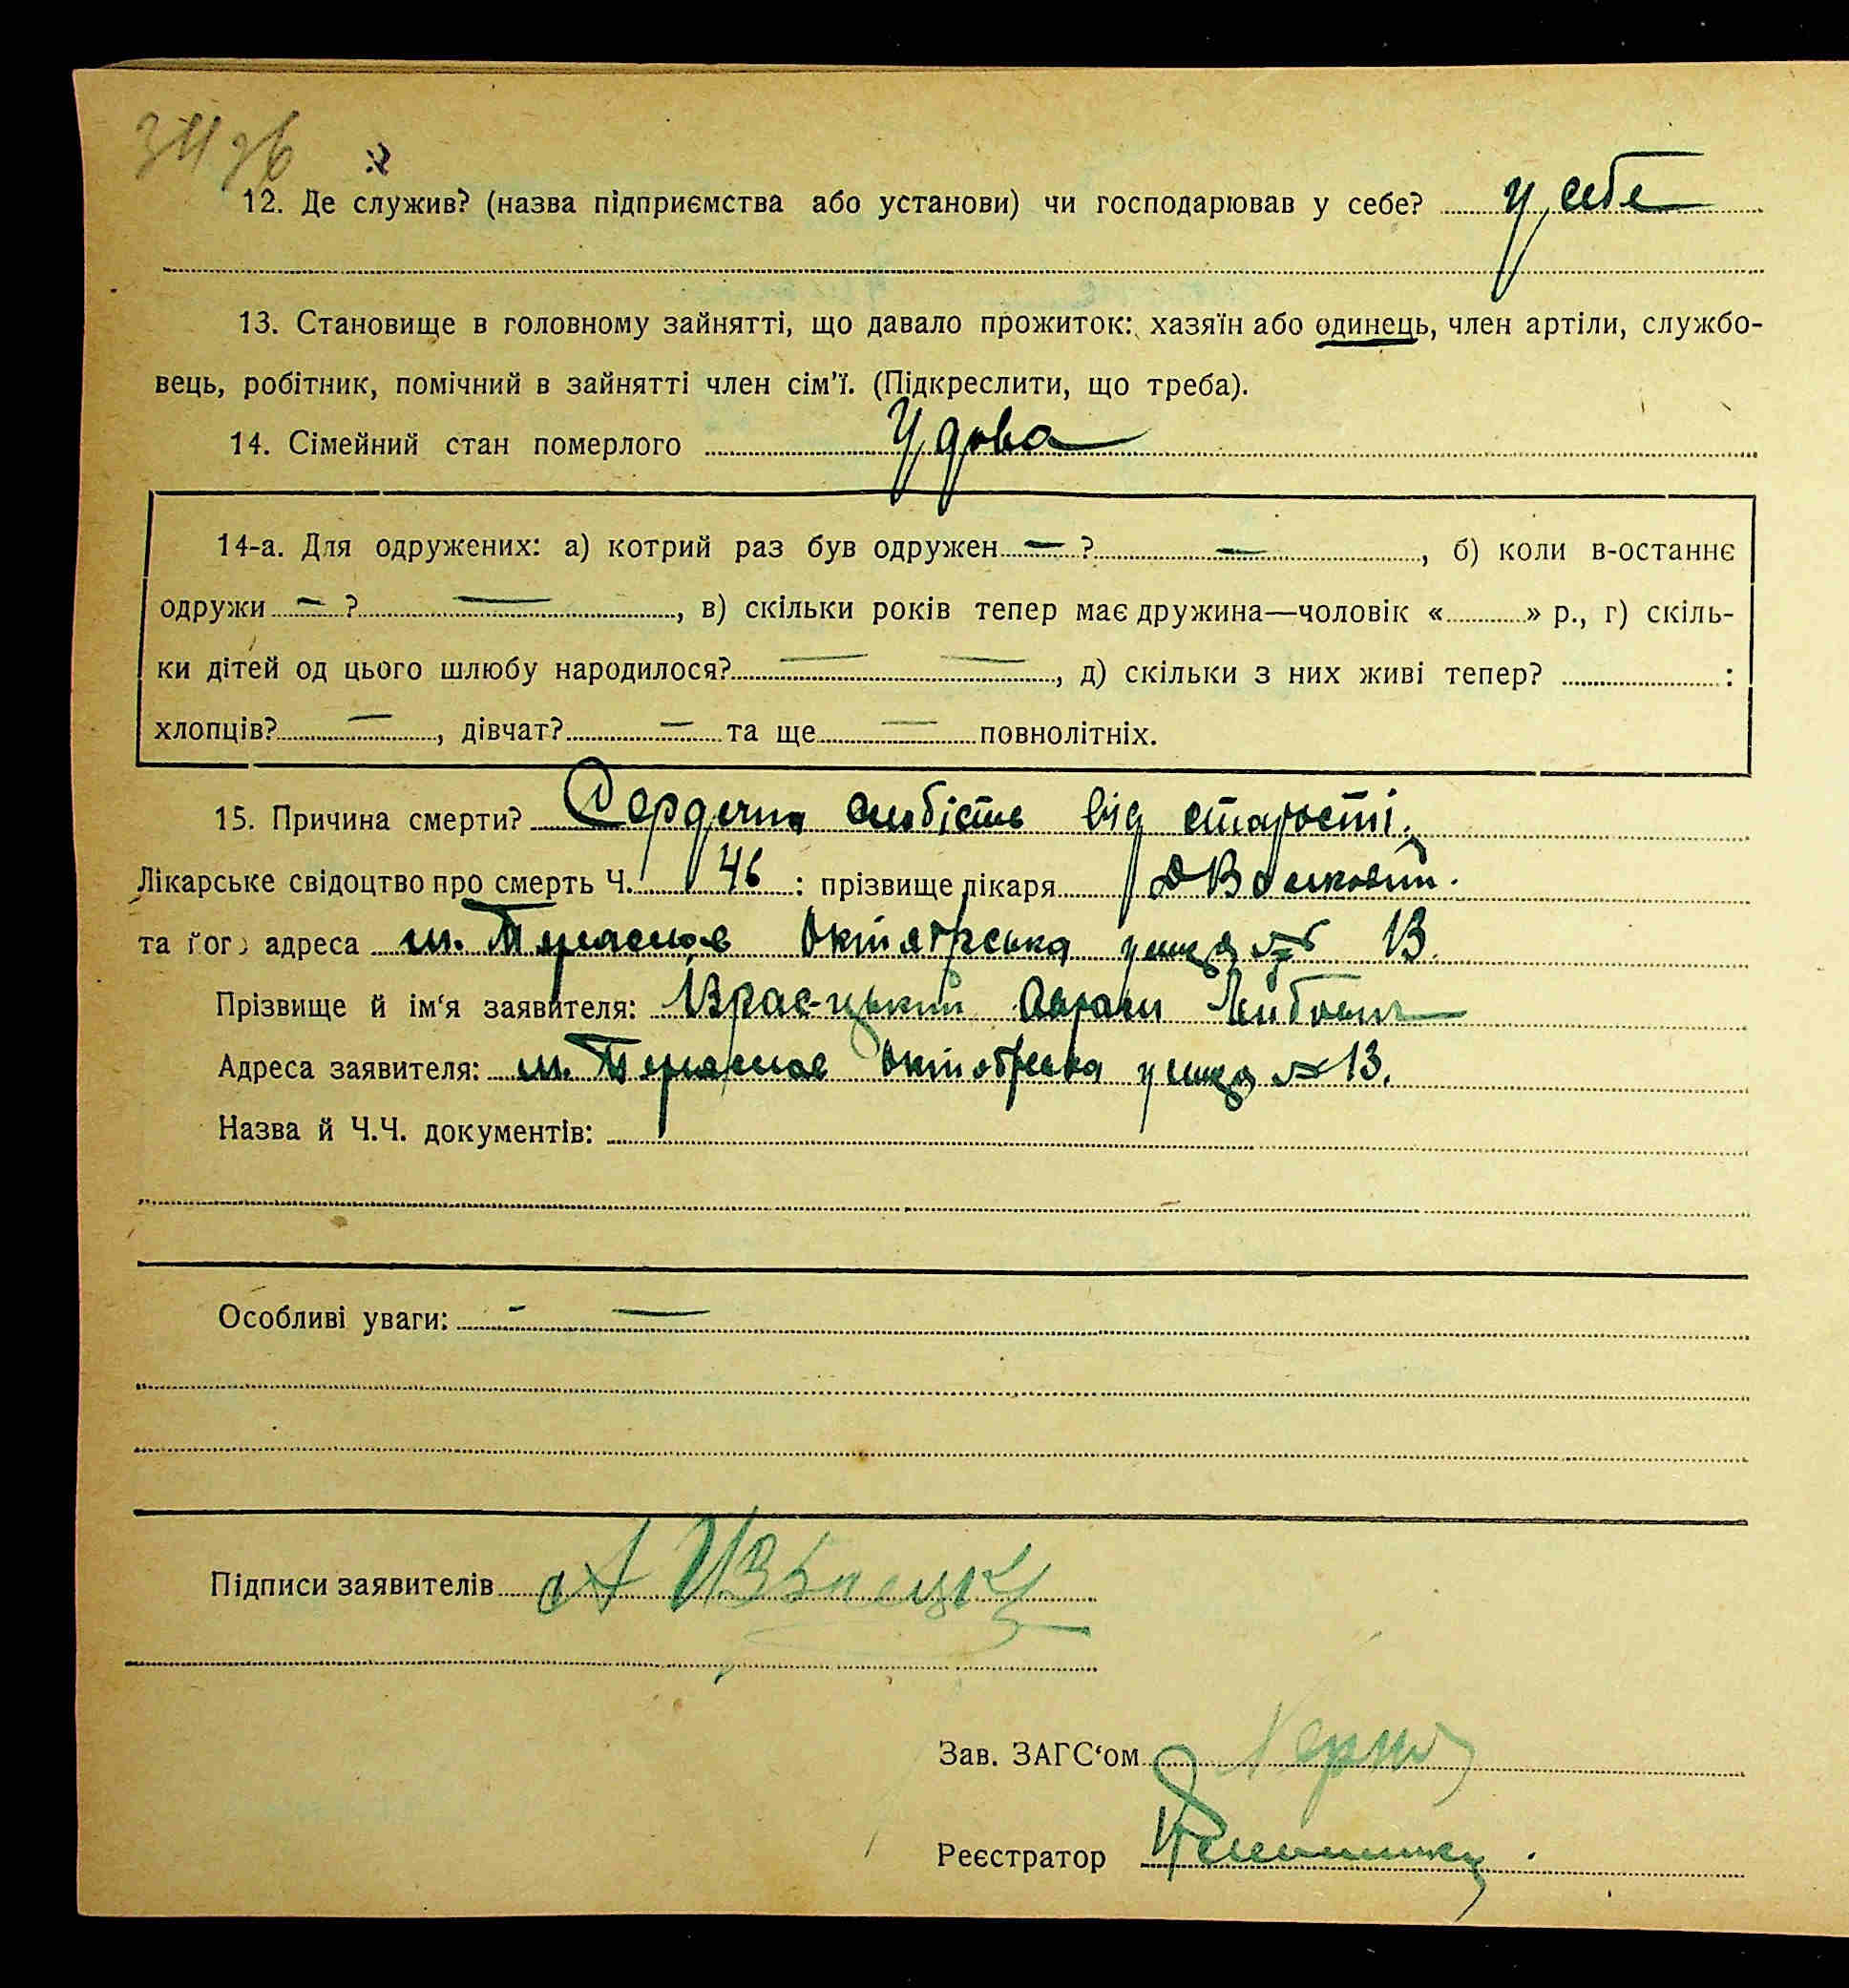 12. Де служив? (назва підприємства або установи) чи господарював у себе? у себе
13. Становище в головному зайнятті, що давало прожиток: хазяїн або одинець, член артіли, службо-
вець, робітник, помічний в зайнятті член сім'ї. (Підкреслити, що треба).
14. Сімейний стан померлого Удова
14-а. Для одружених: а) котрий раз був одружен — ? —, б) коли в-останнє
одружи — ? —, в) скільки років тепер має дружина—чоловік « » р., г) скіль-
ки дітей од цього шлюбу народилося? — —, д) скільки з них живі тепер? :
хлопців? —, дівчат? — та ще — повнолітніх.
15. Причина смерти? Сердечна слабість від старості.
Лікарське свідоцтво про смерть Ч. 46 : прізвище лікаря
та його адреса м. Октябрська улиця № 13.
Прізвище й ім'я заявителя: Авраам Лейбович
Адреса заявителя: м. Октябрська улиця № 13.
Назва й Ч.Ч. документів:
Особливі уваги: — —
Підписи заявителів
Зав. ЗАГС'ом
Реєстратор